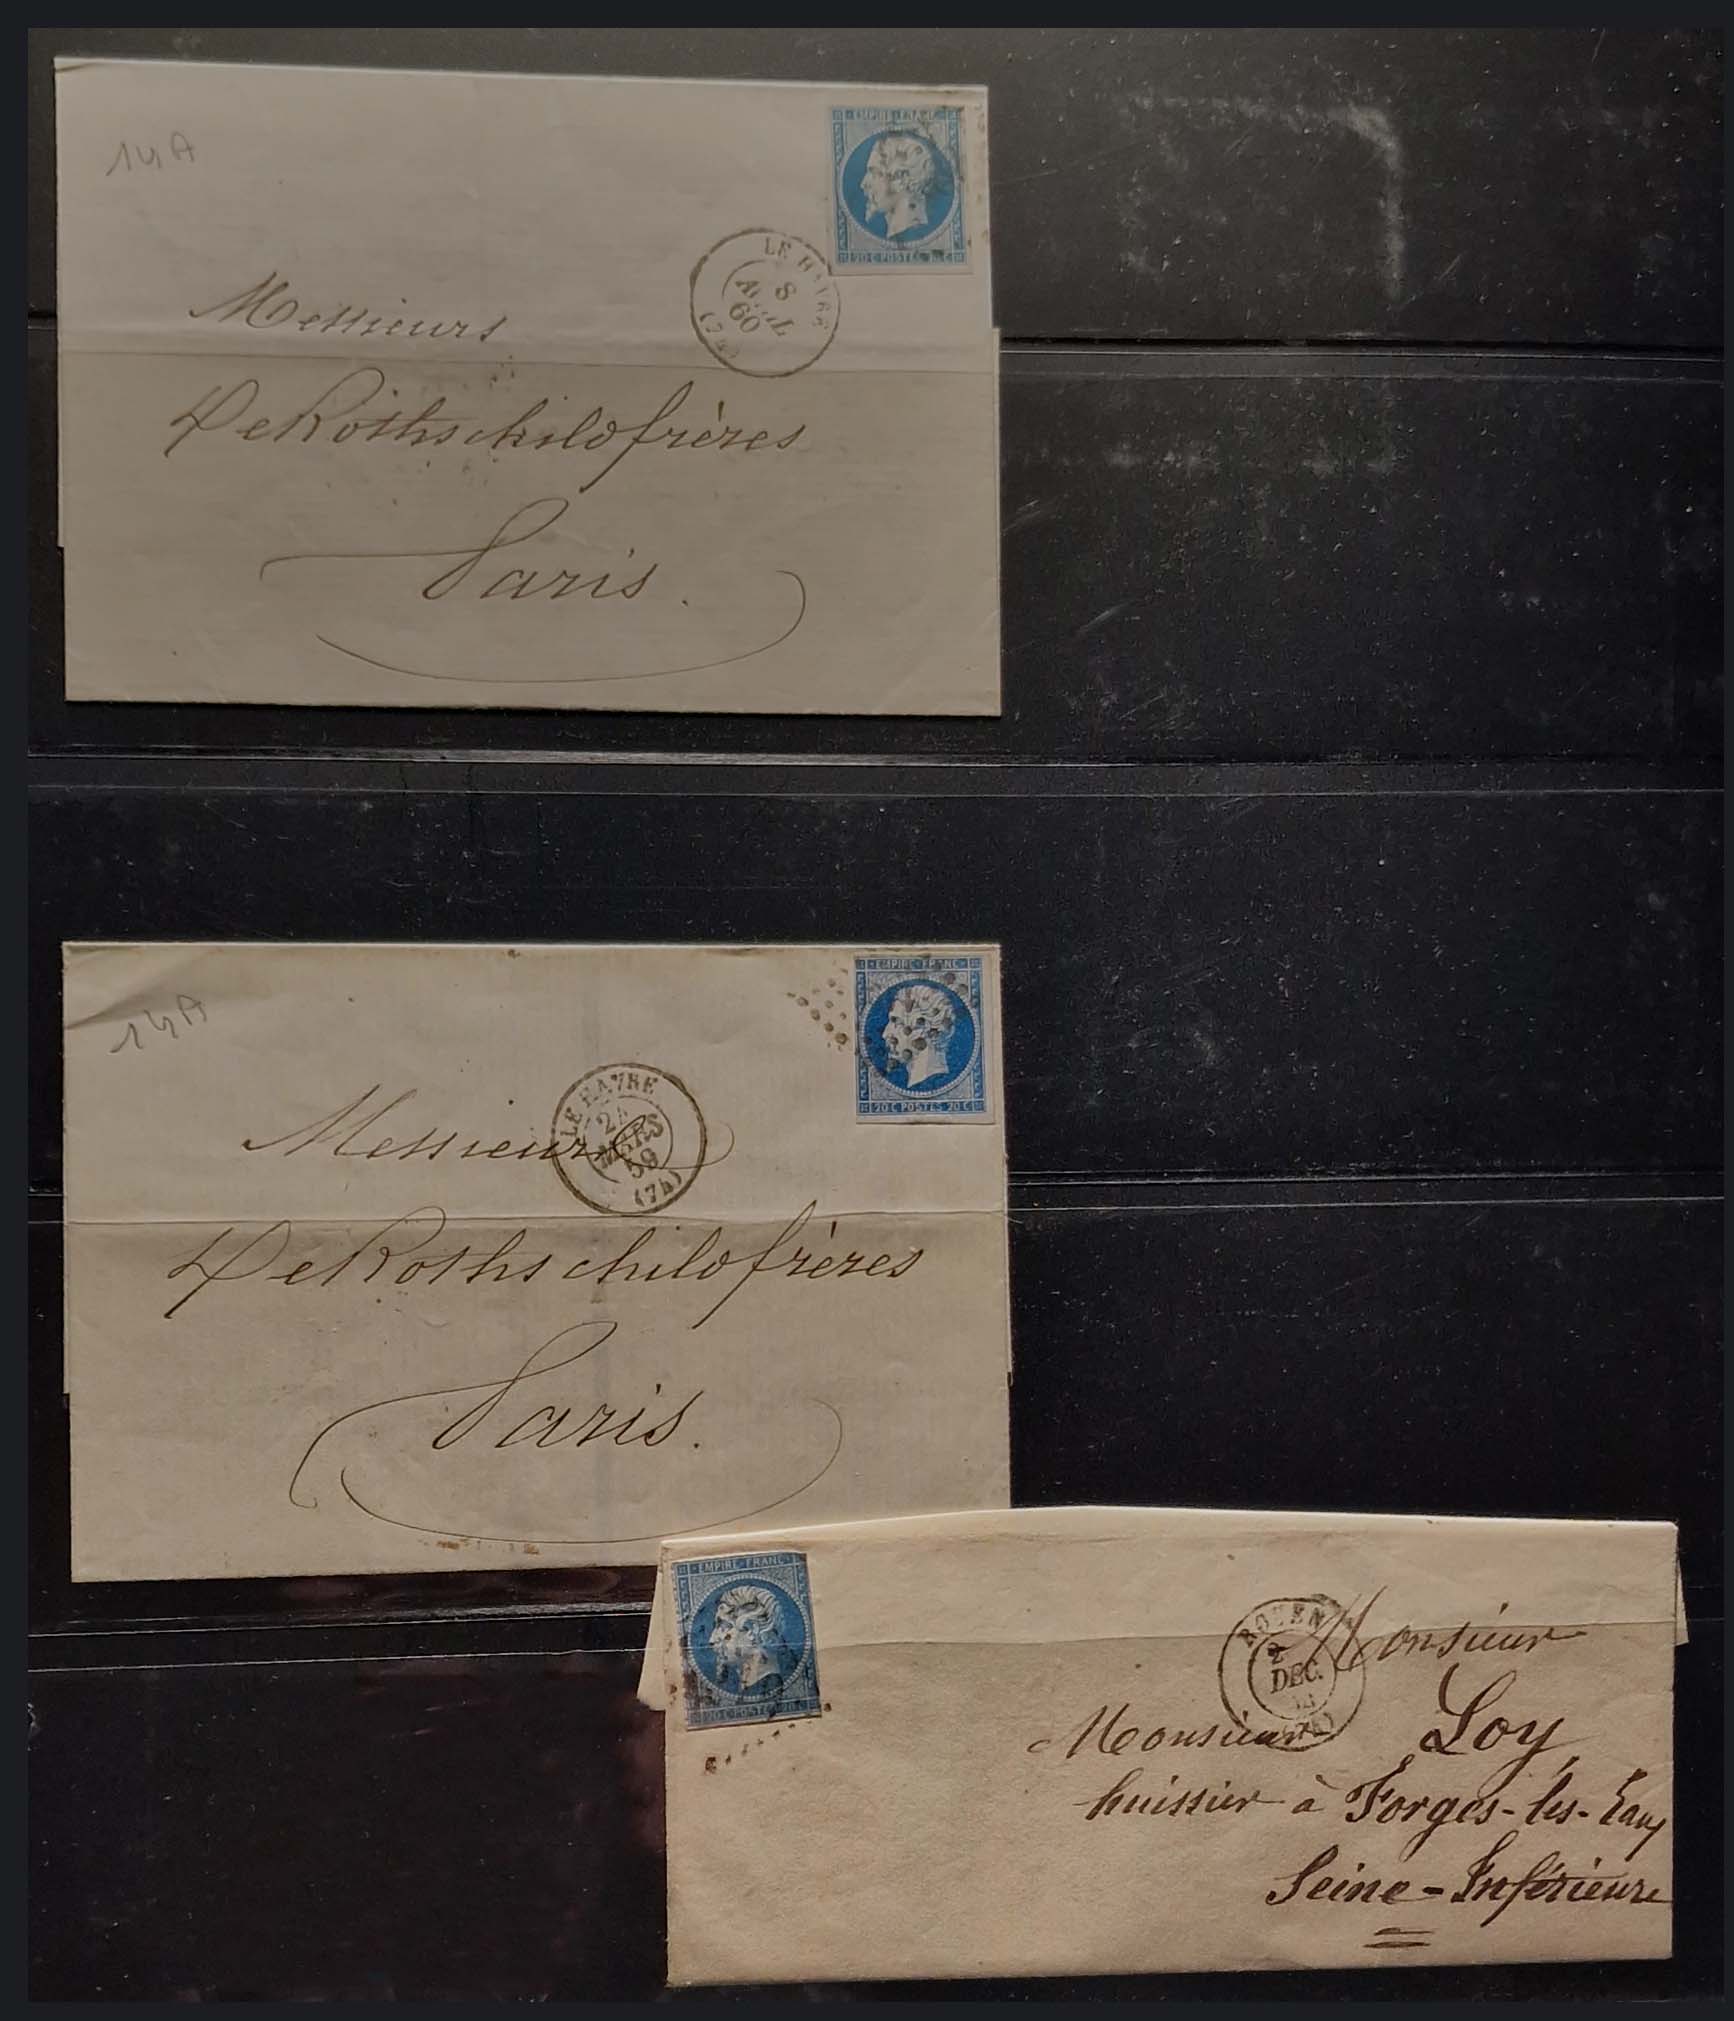 14A
EMPIRE FRANC
20 C POSTES 20 C
LE HAVRE
8
AVRIL
60
Messieurs
De Rothschild frères
Paris.
14A
EMPIRE FRANC
20 C POSTES 20 C
LE HAVRE
24
MARS
59
(74)
Messieurs
De Rothschild frères
Paris.
EMPIRE FRANC
20 C POSTES 20 C
ROUEN
2
DEC.
Monsieur
Monsieur Loy,
huissier à Forges-les-Eaux
Seine-Inférieure